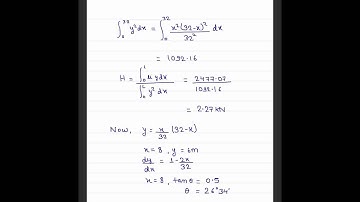 ∫₀³² y²dx = ∫₀³² x²(32-x)²/32² dx
= 1092.16
H = ∫₀ᴸ μ ydx / ∫₀ᴸ y² dx = 2477.07/1092.16
= 2.27 kN
Now, y = x/32 (32-x)
x = 8, y = 6m
dy/dx = 1 - 2x/32
x = 8, tanθ = 0.5
θ = 26°34'